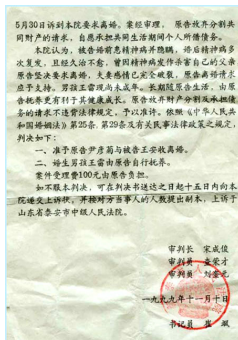 5月30日诉到本院要求离婚。案经审理，原告放弃分割共
同财产的请求，自愿承担共同生活期间个人所借债务。
本院认为，被告婚前患精神病并隐瞒，婚后精神病多
次复发，且经久治不愈，曾因精神病发作杀害自己的父亲
原告坚决要求离婚，夫妻感情已完全破裂，原告离婚请求
应予支持。男孩王雷尚未成年，长期随原告生活，由原
告抚养更有利于其健康成长。原告放弃财产分割及承担债
务的请求不违背法律规定，予以准许。依照《中华人民共
和国婚姻法》第25条、第29条及有关民事法律政策之规定，
判决如下：
一、准予原告尹彦菊与被告王安收离婚。
二、婚生男孩王雷由原告自行抚养。
案件受理费100元由原告负担。
如不服本判决，可在判决书送达之日起十五日内向本
院递交上诉状，并按对方当事人的人数提出副本，上诉于
山东省泰安市中级人民法院。
审判长 宋成俊
审判员
审判员 刘
一九九九年十一月十日
书记员 崔